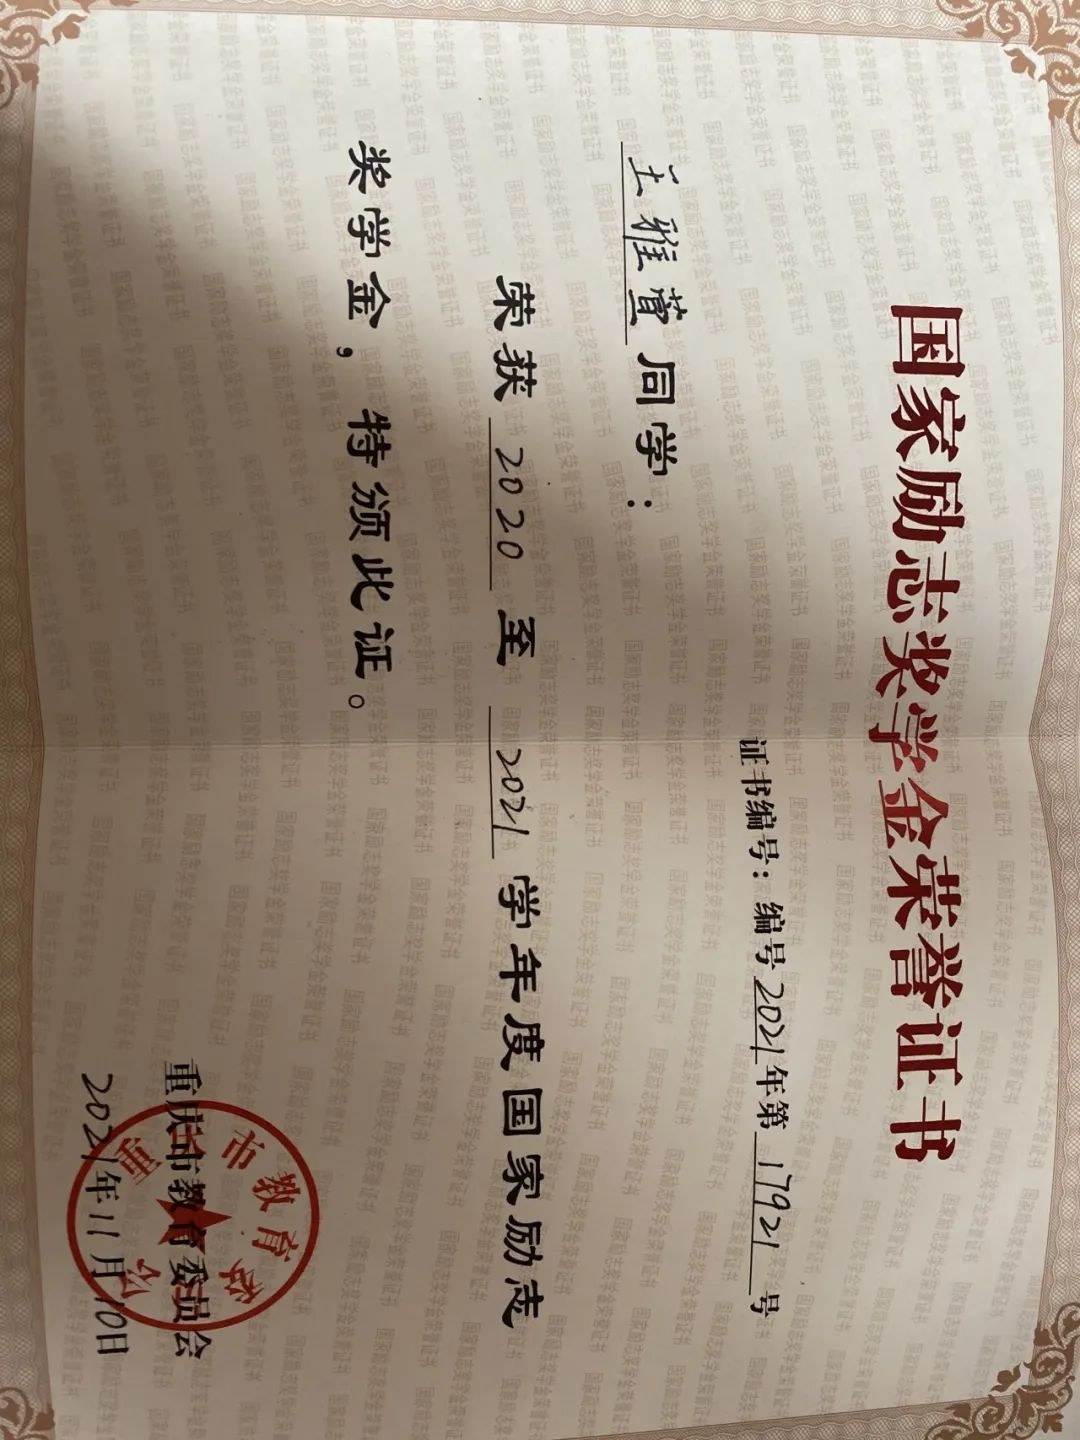 国家励志奖学金荣誉证书
证书编号：编号2021年第17921号
王雅萱同学：
荣获2020至2021学年度国家励志
奖学金，特颁此证。
重庆市教育委员会
2021年11月10日